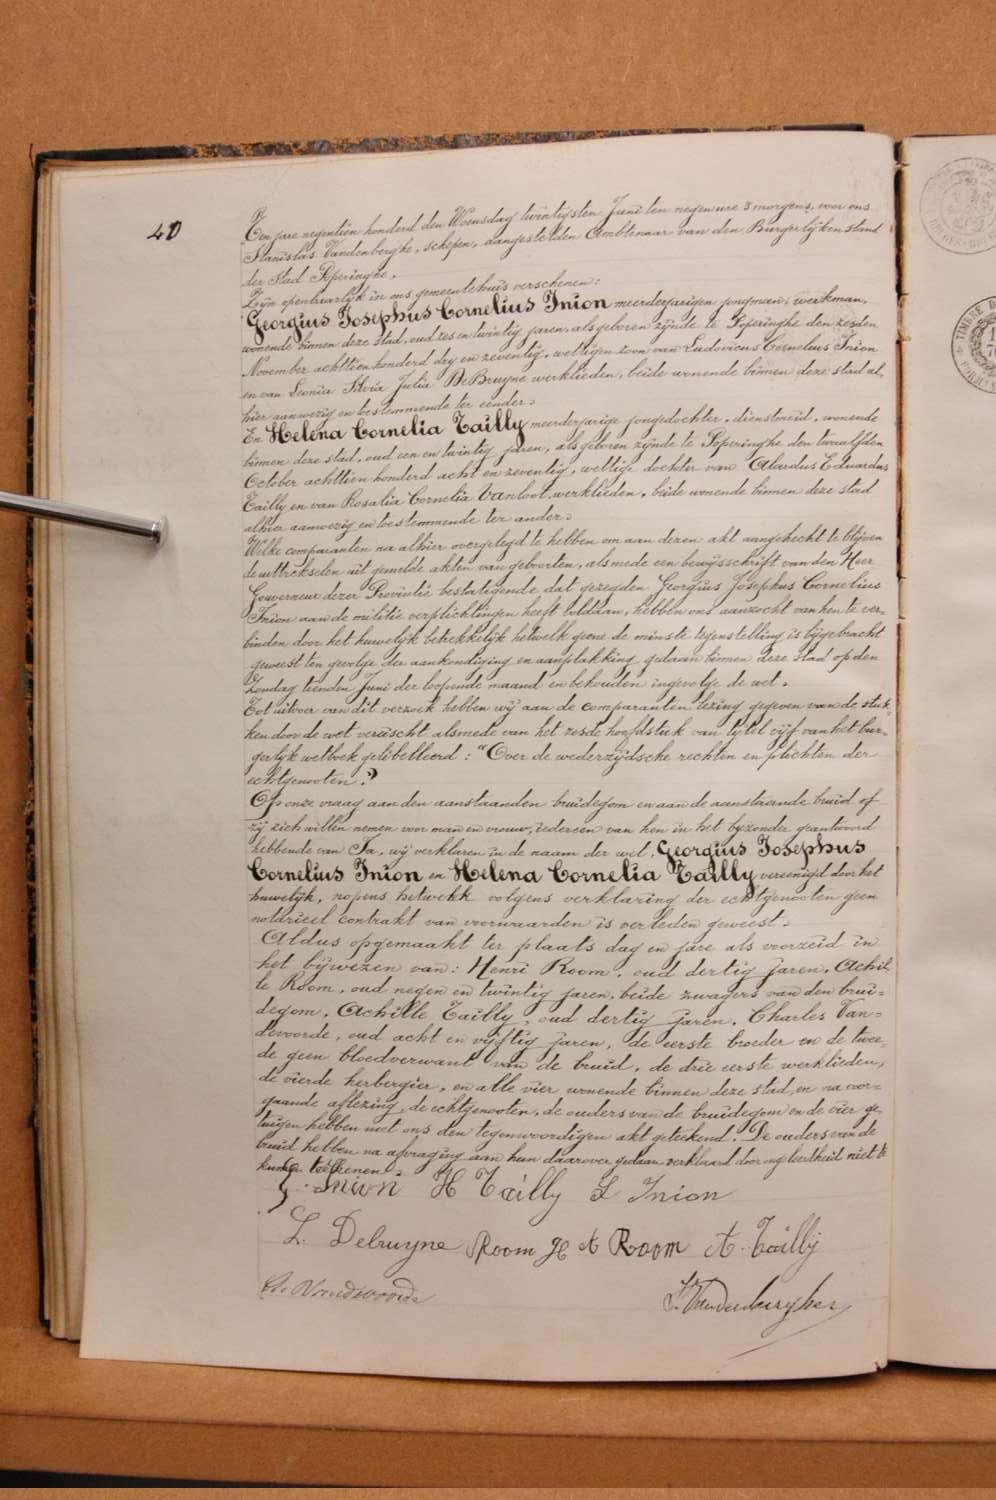 40
Ten jare negentien honderd den Woensdag twintigsten Juni ten negen ure 's morgens, voor ons
Stanislas Vandenberghe, schepen, aangestelden Ambtenaar van den Burgerlijken stand
der stad Poperinghe,
Zijn openbaarlijk in ons gemeentehuis verschenen:
Georgius Josephus Cornelius Inion meerderjarigen jongman, werkman,
wonende binnen deze stad, oud zes en twintig jaren, als geboren zijnde te Poperinghe den zesden
November achttien honderd dry en zeventig, wettigen zoon van Ludovicus Cornelius Inion
en van Leonia Silvia Julia DeBruyne werklieden, beide wonende binnen deze stad al,
hier aanwezig en toestemmende ter eender.
En Helena Cornelia Tailly meerderjarige jongedochter, dienstmeid, wonende
binnen deze stad, oud een en twintig jaren, als geboren zijnde te Poperinghe den twaalfden
October achttien honderd acht en zeventig, wettige dochter van Alardus Eduardus
Tailly en van Rosalia Cornelia Vanloot, werklieden, beide wonende binnen deze stad
alhier aanwezig en toestemmende ter ander.
Welke comparanten na alhier overgelegd te hebben om aan dezen akt aangehecht te blijven
de uittrekselen uit gemelde akten van geboorten, alsmede een bewijsschrift van den Heer
Gouverneur dezer Provintie bestatigende dat gezegden Georgius Josephus Cornelius
Inion aan de militie verplichtingen heeft voldaan, hebben ons aanzocht van hen te ver-
binden door het huwelijk betrekkelijk hetwelk geene de minste tegenstelling is bijgebracht
geweest ten gevolge der aankondiging en aanplakking gedaan binnen deze stad op den
Zondag tienden Juni der loopende maand en behouden ingevolge de wet.
Tot uitvoer van dit verzoek hebben wij aan de comparanten lezing gegeven van de stuk-
ken door de wet vereischt alsmede van het zesde hoofdstuk van tytel vijf van het bur-
gerlijk wetboek gelibelleerd: "Over de wederzijdsche rechten en plichten der
echtgenooten."
Op onze vraag aan den aanstaanden bruidegom en aan de aanstaande bruid of
zij zich willen nemen voor man en vrouw, iedereen van hen in het byzonder geantwoord
hebbende van Ja, wij verklaren in de naam der wet, Georgius Josephus
Cornelius Inion en Helena Cornelia Tailly vereenigd door het
huwelijk, nopens hetwelk volgens verklaring der echtgenooten geen
notarieel contrakt van voorwaarden is verleden geweest.
Aldus opgemaakt ter plaats dag en jare als voorzeid in
het bijwezen van: Henri Room, oud dertig jaren, Achil,
le Room, oud negen en twintig jaren, beide zwagers van den brui-
degom, Achille Tailly, oud dertig jaren, Charles Van-
devoorde, oud acht en vijftig jaren, de eerste broeder en de twee-
de geen bloedverwant van de bruid, de drie eerste werklieden,
de vierde herbergier, en alle vier wonende binnen deze stad, en na voor-
gaande aflezing, de echtgenooten, de ouders van de bruidegom en de vier ge-
tuigen hebben met ons den tegenwoordigen akt geteekend. De ouders van de
bruid hebben na afvraging aan hun daarover gedaan verklaard door ongeleerdheid niet te
kunnen teekenen.
G. Inion H Tailly L Inion
L. Debruyne Room H A Room A. Tailly
Ch. Vandevoorde S. Vandenberghe